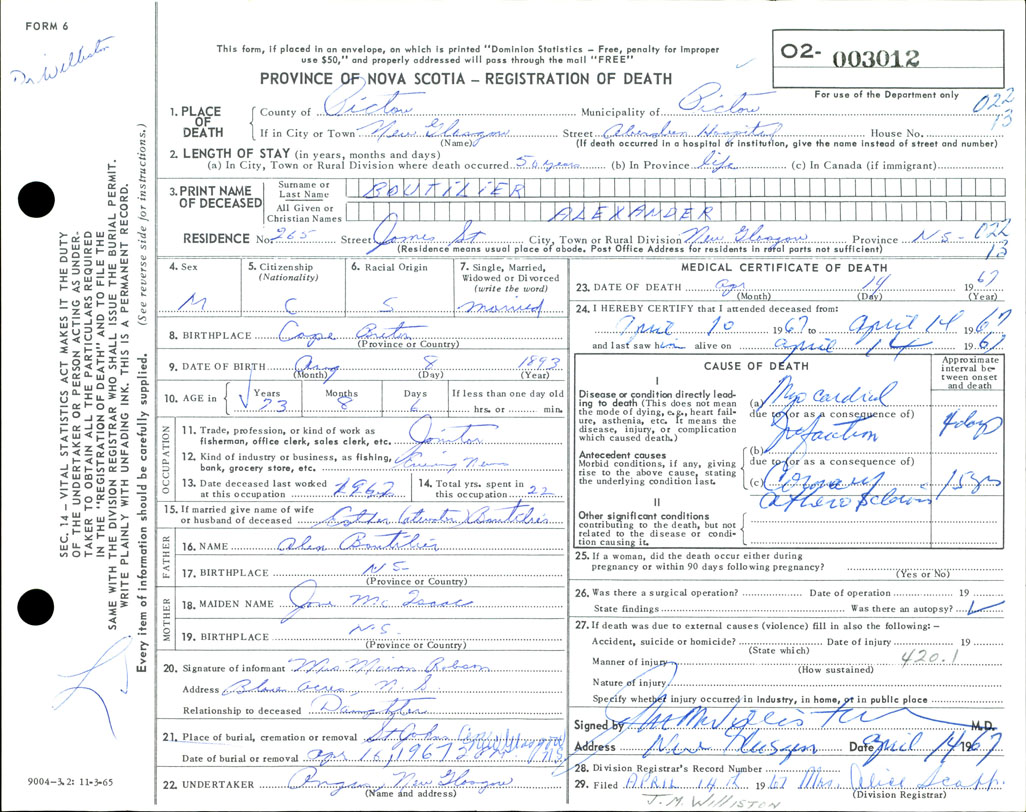 FORM 6
Dr Williston
This form, if placed in an envelope, on which is printed "Dominion Statistics – Free, penalty for improper
use $50," and properly addressed will pass through the mail "FREE"
PROVINCE OF NOVA SCOTIA – REGISTRATION OF DEATH
O2- 003012
For use of the Department only
022
13
1. PLACE OF DEATH
County of Pictou Municipality of Pictou
If in City or Town New Glasgow Street Aberdeen Hospital House No.
(Name) (If death occurred in a hospital or institution, give the name instead of street and number)
2. LENGTH OF STAY (in years, months and days)
(a) In City, Town or Rural Division where death occurred 50 years (b) In Province life (c) In Canada (if immigrant)
3. PRINT NAME OF DECEASED
Surname or Last Name BOUTILIER
All Given or Christian Names ALEXANDER
RESIDENCE No. 265 Street James St City, Town or Rural Division New Glasgow Province N S- 022
13
(Residence means usual place of abode. Post Office Address for residents in rural parts not sufficient)
4. Sex M
5. Citizenship (Nationality) C
6. Racial Origin S
7. Single, Married, Widowed or Divorced (write the word) married
8. BIRTHPLACE Cape Breton
(Province or County)
9. DATE OF BIRTH Aug 8 1893
(Month) (Day) (Year)
10. AGE in Years 73 Months 8 Days 6 If less than one day old hrs. or min.
OCCUPATION
11. Trade, profession, or kind of work as fisherman, office clerk, sales clerk, etc. Janitor
12. Kind of industry or business, as fishing, bank, grocery store, etc. Evening News
13. Date deceased last worked at this occupation 1962
14. Total yrs. spent in this occupation 22
15. If married give name of wife or husband of deceased Esther Boutilier
FATHER
16. NAME Alex Boutilier
17. BIRTHPLACE N S-
(Province or County)
MOTHER
18. MAIDEN NAME Jane Mc Isaac
19. BIRTHPLACE N.S.
(Province or County)
20. Signature of informant Mrs Robson
Address N. S
Relationship to deceased Daughter
21. Place of burial, cremation or removal St Johns
Date of burial or removal apr 16, 1967
22. UNDERTAKER New Glasgow
(Name and address)
MEDICAL CERTIFICATE OF DEATH
23. DATE OF DEATH apr 14 1967
(Month) (Day) (Year)
24. I HEREBY CERTIFY that I attended deceased from:
April 10 1967 to April 14 1967
and last saw him alive on April 14 1967
CAUSE OF DEATH
Approximate interval between onset and death
I
Disease or condition directly leading to death (This does not mean the mode of dying, e.g., heart failure, asthenia, etc. It means the disease, injury, or complication which caused death.)
(a) Myocardial
due to or as a consequence of)
Infarction 4 days
Antecedent causes
Morbid conditions, if any, giving rise to the above cause, stating the underlying condition last.
(b)
due to (or as a consequence of)
(c) Coronary 15 yrs
atherosclerosis
II
Other significant conditions
contributing to the death, but not related to the disease or condition causing it.
25. If a woman, did the death occur either during
pregnancy or within 90 days following pregnancy?
(Yes or No)
26. Was there a surgical operation? Date of operation 19
State findings Was there an autopsy?
27. If death was due to external causes (violence) fill in also the following: –
Accident, suicide or homicide? Date of injury 19
(State which)
Manner of injury 420.1
(How sustained)
Nature of injury
Specify whether injury occurred in industry, in home, or in public place
Signed by J M Williston M.D.
Address New Glasgow Date April 14 1967
28. Division Registrar's Record Number
29. Filed APRIL 14th 1967 Mrs. Alice
(Division Registrar)
J. M. WILLISTON
SEC. 14 – VITAL STATISTICS ACT MAKES IT THE DUTY
OF THE UNDERTAKER OR PERSON ACTING AS UNDER-
TAKER TO OBTAIN ALL THE PARTICULARS REQUIRED
IN THE "REGISTRATION OF DEATH" AND TO FILE THE
SAME WITH THE DIVISION REGISTRAR WHO SHALL ISSUE THE BURIAL PERMIT.
WRITE PLAINLY WITH UNFADING INK. THIS IS A PERMANENT RECORD.
Every item of information should be carefully supplied. (See reverse side for instructions.)
9004-3.2: 11-3-65